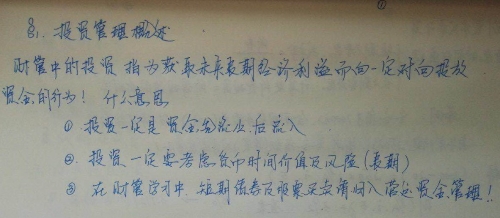 ①
§1. 投资管理概述
财管中的投资 指为获取未来长期经济利益而向一定对向投放
资金的行为！ 什么意思
① 投资一定是资金先流出后流入
②. 投资一定要考虑货币时间价值及风险(长期)
③ 在财管学习中, 短期债券及股票买卖请归入营运资金管理!!